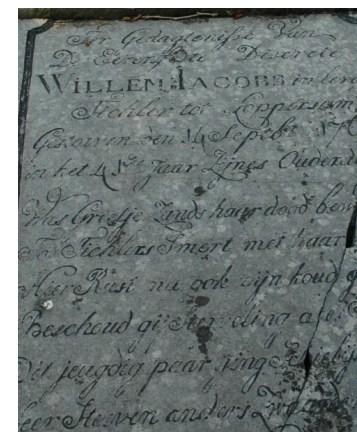 Ter Gedagtenisse Van
De Eersame Discrete
WILLEM IACOBS in leven
Tichler tot Loppersum
Gestorven den 14 Septbr
in het 41ste Jaar Zijnes Ouderd
Was Grietje Zands haar dood bew
Tichlers Smert met haar
Hier Rust nu ook zijn koud g
Beschoud gij sterveling
Dit jeugdig paar ging
Leer Sterven anders